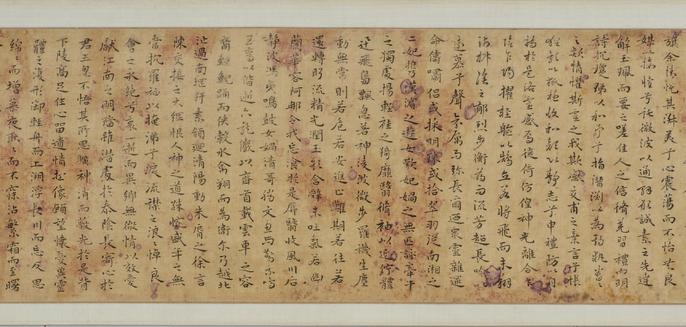 旅余情悅其淑美兮心震蕩而不怡無良
媒以接歡兮託微波以通辭願誠素之先達
解玉珮而要之嗟佳人之信脩羌習禮而明
詩抗瓊珶以和予兮指潛淵以為期執眷
之款情懼斯靈之我欺感交甫之棄言兮悵
猶豫而狐疑收和顏以靜志兮申禮防以自
持於是洛靈感焉徙倚仿偟神光離合乍
陰乍陽擢輕軀以鶴立若將飛而未翔
踐椒塗之郁烈步蘅薄而流芳超長吟以
遠慕兮聲哀厲而彌長爾迺衆靈雜遝
命儔嘯侶或採明珠或拾翠羽從南湘之
二妃攜漢濱之遊女歎匏媧之無匹詠牽牛
之獨處揚輕袿之猗靡翳脩袖以延佇體
迅飛鳧飄忽若神陵波微步羅襪生塵
動無常則若危若安進止難期若往若
還轉眄流精光潤玉顏含辭未吐氣若幽
蘭華容婀娜令我忘湌於是屏翳收風川后
靜波馮夷鳴鼓女媧清哥騰文魚以警乘鳴
玉鸞以偕逝六龍儼以齊首載雲車之容
裔鯨鯢踊而俠轂水禽翔而為衛於是越北
沚過南堈紆素領迴清陽動朱脣以徐言
陳交接之大綱恨人神之道殊怨盛年之無
當抗羅袂以掩涕兮淚流襟之浪浪悼良
會之永絕兮哀一逝而異鄉無微情以效愛
獻江南之明璫雖潛處於泰陰長寄心於
君王忽不悟其所舍悵神消而蔽光於是背
下陵高足往心留遺情想像顧望懷愁冀靈
體之復形御輕舟而上溯浮長川而忘反思
綿綿而增慕夜耿耿而不寐沾繁霜而至曙